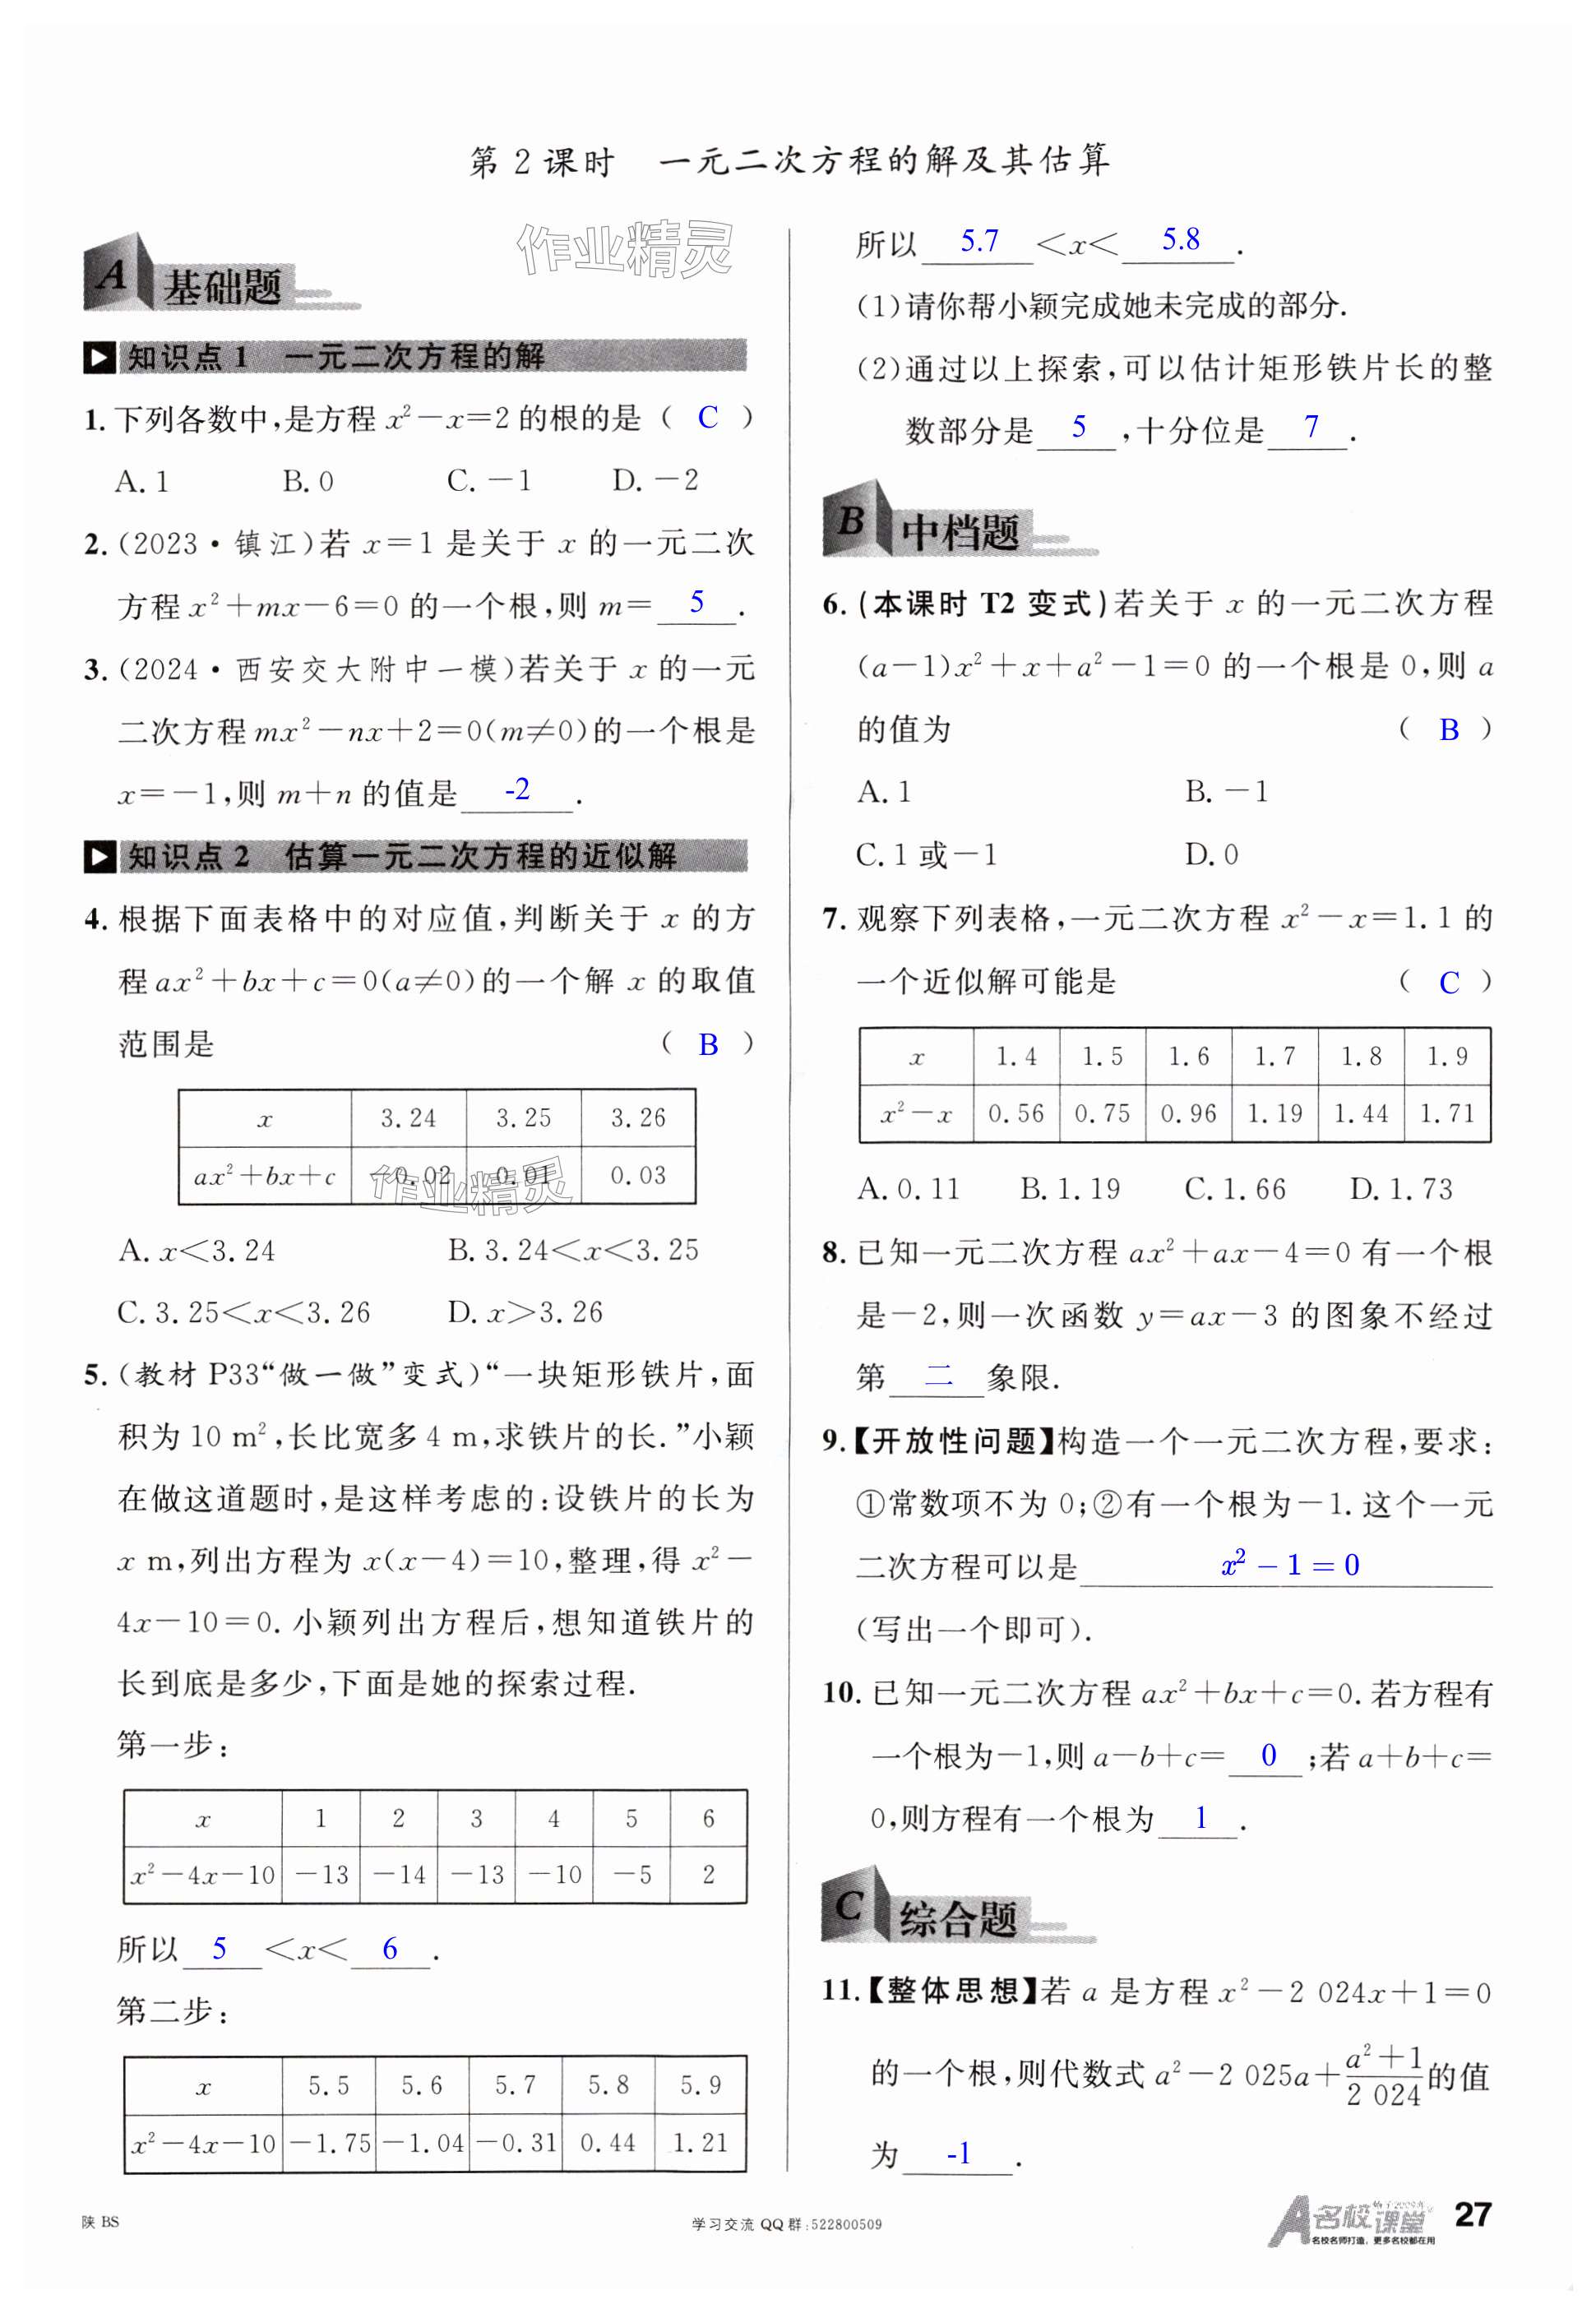 第 2 课时　一元二次方程的解及其估算
作业精灵
A 基础题
知识点 1　一元二次方程的解
1. 下列各数中,是方程 x²－x＝2 的根的是 ( C )
A. 1　B. 0　C. －1　D. －2
2. (2023·镇江)若 x＝1 是关于 x 的一元二次
方程 x²＋mx－6＝0 的一个根,则 m＝ 5 .
3. (2024·西安交大附中一模)若关于 x 的一元
二次方程 mx²－nx＋2＝0(m≠0)的一个根是
x＝－1,则 m＋n 的值是 -2 .
知识点 2　估算一元二次方程的近似解
4. 根据下面表格中的对应值,判断关于 x 的方
程 ax²＋bx＋c＝0(a≠0)的一个解 x 的取值
范围是 ( B )
x　3.24　3.25　3.26
ax²＋bx＋c　－0.02　0.01　0.03
作业精灵
A. x＜3.24　B. 3.24＜x＜3.25
C. 3.25＜x＜3.26　D. x＞3.26
5. (教材 P33“做一做”变式)“一块矩形铁片,面
积为 10 m²,长比宽多 4 m,求铁片的长.”小颖
在做这道题时,是这样考虑的:设铁片的长为
x m,列出方程为 x(x－4)＝10,整理,得 x²－
4x－10＝0. 小颖列出方程后,想知道铁片的
长到底是多少,下面是她的探索过程.
第一步:
x　1　2　3　4　5　6
x²－4x－10　－13　－14　－13　－10　－5　2
所以 5 ＜x＜ 6 .
第二步:
x　5.5　5.6　5.7　5.8　5.9
x²－4x－10　－1.75　－1.04　－0.31　0.44　1.21
所以 5.7 ＜x＜ 5.8 .
(1)请你帮小颖完成她未完成的部分.
(2)通过以上探索,可以估计矩形铁片长的整
数部分是 5 ,十分位是 7 .
B 中档题
6. (本课时 T2 变式)若关于 x 的一元二次方程
(a－1)x²＋x＋a²－1＝0 的一个根是 0,则 a
的值为 ( B )
A. 1　B. －1
C. 1 或－1　D. 0
7. 观察下列表格,一元二次方程 x²－x＝1.1 的
一个近似解可能是 ( C )
x　1.4　1.5　1.6　1.7　1.8　1.9
x²－x　0.56　0.75　0.96　1.19　1.44　1.71
A. 0.11　B. 1.19　C. 1.66　D. 1.73
8. 已知一元二次方程 ax²＋ax－4＝0 有一个根
是－2,则一次函数 y＝ax－3 的图象不经过
第 二 象限.
9.【开放性问题】构造一个一元二次方程,要求:
①常数项不为 0;②有一个根为－1. 这个一元
二次方程可以是 x²－1＝0
(写出一个即可).
10. 已知一元二次方程 ax²＋bx＋c＝0. 若方程有
一个根为－1,则 a－b＋c＝ 0 ;若 a＋b＋c＝
0,则方程有一个根为 1 .
C 综合题
11.【整体思想】若 a 是方程 x²－2 024x＋1＝0
的一个根,则代数式 a²－2 025a＋(a²＋1)/(2 024) 的值
为 -1 .
陕 BS
学习交流 QQ 群:522800509
名校课堂
名校名师打造,更多名校都在用
27